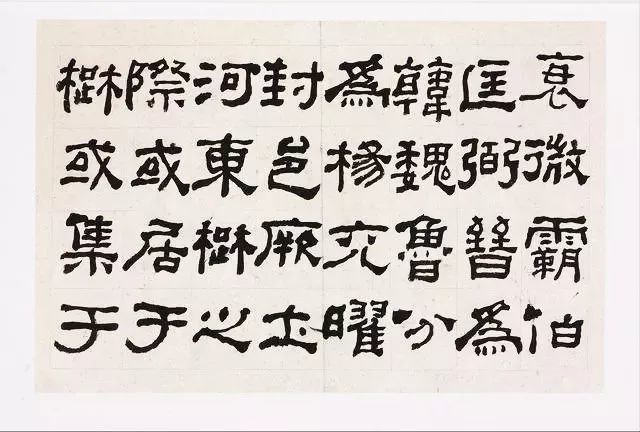 衰微霸伯
匡弼晉為
韓魏魯分
為楊充曜
封邑厥土
河東楚之
際或居于
楚或集于